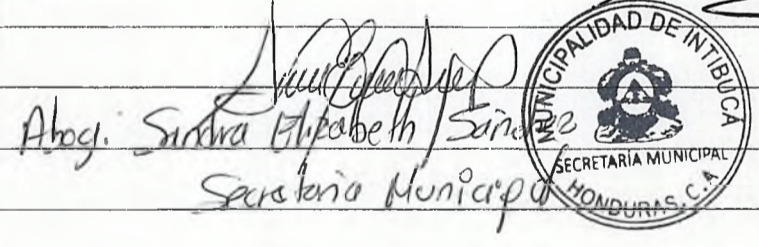 Abog. Sandra Elizabeth Sánchez
Secretaria Municipal
MUNICIPALIDAD DE INTIBUCÁ
SECRETARÍA MUNICIPAL
HONDURAS, C.A